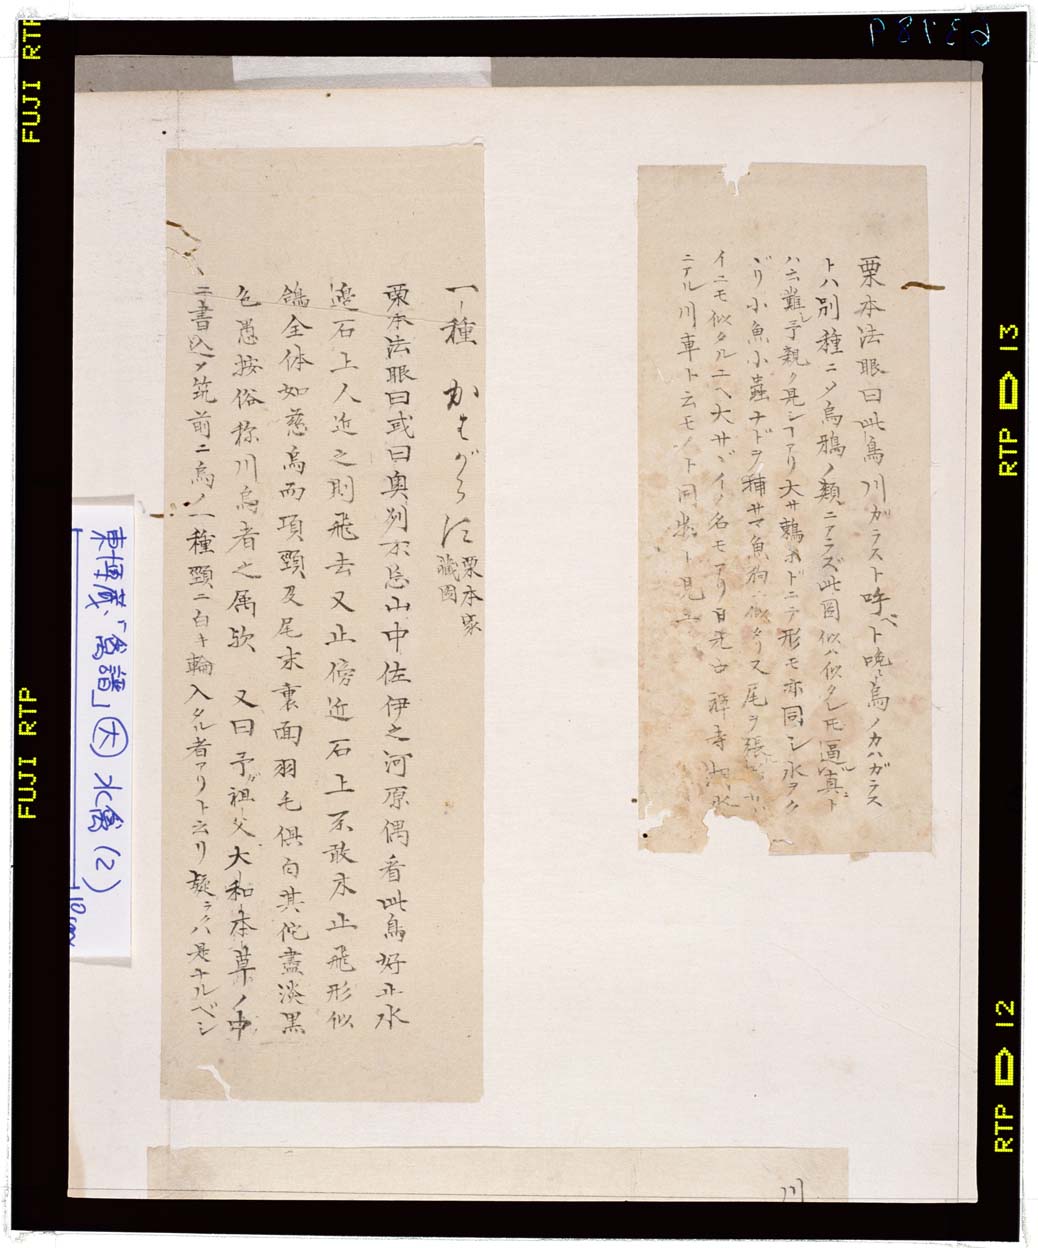 栗本法眼曰此鳥川ガラスト呼ベト
鳥ノカハガラス
トハ別種ニメ烏鴉ノ類ニアラズ此図似ハ似タレ𪜈逼真ト
ハ云難シ予親ク見シ
アリ大サ鶉ホドニテ形モ亦同シ水ヲク
ヾリ小魚小蟲ナドヲ
サマ魚狗ニ似タリ
尾ヲ張
イニモ似タルユヘ大サヾイノ名モアリ
ニアル川車ト云モノト同
ト見ユ
一種 かはがらす 栗本家
蔵図
栗本法眼曰或曰奥州
山中佐伊之河原偶看此鳥好止水
邉石上人近之則飛去又止傍近石上不敢木止飛形似
鴿全体如慈烏而項頸及尾末裏面羽毛倶白其佗盡淡黒
色愚按俗称川烏者之属歟 又曰予ガ祖父大和本草ノ中
ニ書込メ筑前ニ烏ノ一種頸ニ白キ輪入タル者アリト云リ疑ラクハ是ナルベシ
川
東博蔵、「鳥譜」 水禽(2)
10cm
FUJI RTP
FUJI RTP
RTP 13
RTP 12